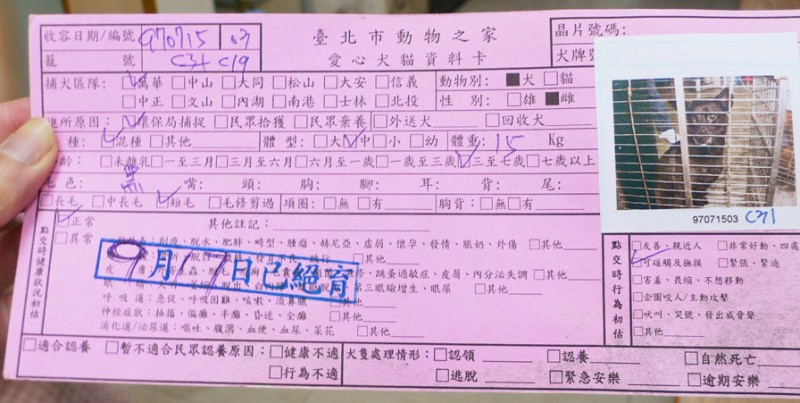 收容日期/編號 970715 03
臺北市動物之家
晶片號碼:
籠 號 C31 C19
愛心犬貓資料卡
犬牌號
捕犬區隊: ☑萬華 □中山 □大同 □松山 □大安 □信義 動物別: ■犬 □貓
□中正 □文山 □內湖 □南港 □士林 □北投 性 別: □雄 ■雌
進所原因: ☑環保局捕捉 □民眾拾獲 □民眾棄養 □外送犬 □回收犬
種: ☑混種 □其他 體 型: □大 ☑中 □小 □幼 體重: 15 Kg
齡: □未離乳 □一至三月 □三月至六月 □六月至一歲 □一歲至三歲 ☑三至七歲 □七歲以上
毛 色: 黑 嘴: 頭: 胸: 腳: 耳: 背: 尾:
□長毛 □中長毛 ☑短毛 □毛修剪過 項圈: □無 □有 胸背: □無 □有
97071503 C31
點交時健康狀況初估
☑正常 其他註記:
□異常
脫水、肥胖、畸型、腫瘤、赫尼亞、虛弱、懷孕、發情、脹奶、外傷 □其他
□其他
跳蚤過敏症、皮屑、內分泌失調 □其他
第三眼瞼增生、眼屎 □其他
9月 日已絕育
呼吸道: 急促、呼吸困難、咳嗽、流鼻膿 □其他
神經症狀: 抽搐、偏癱、半癱、昏迷、全癱 □其他
消化道/泌尿道: 嘔吐、腹瀉、血便、血尿、菜花 □其他
點交時行為初估
□友善、親近人 □非常好動、四處
☑可碰觸及撫摸 □緊張、緊迫
□害羞、畏縮、不想移動
□企圖咬人/主動攻擊
□吠叫、哭號、發出威脅聲
□其他
□適合認養 □暫不適合民眾認養原因: □健康不適 犬隻處理情形: □認領 □認養 □自然死亡
□行為不適 □逃脫 □緊急安樂 □逾期安樂